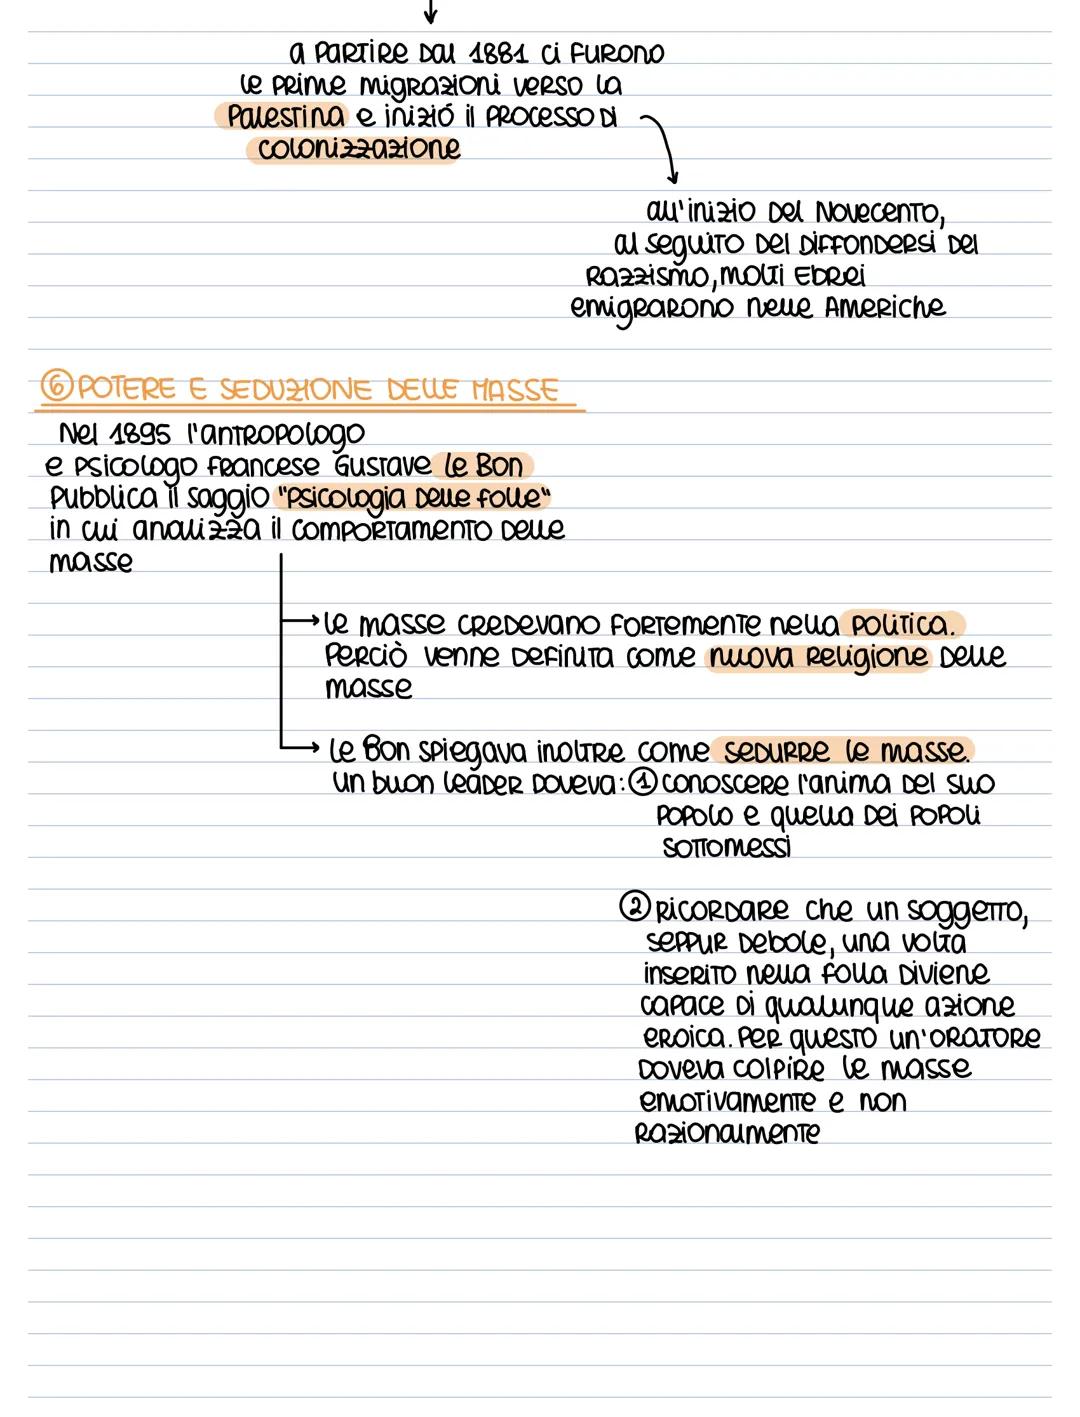 a partire dal 1881 ci furono
le prime migrazioni verso la
Palestina e inizió il processo di
colonizzazione
all'inizio del Novecento,
al seguito del diffondersi del
razzismo, molti Ebrei
emigrarono nelle Americhe
⑥ POTERE E SEDUZIONE DELLE MASSE
Nel 1895 l'antropologo
e psicologo francese Gustave le Bon
pubblica il saggio "Psicologia delle folle"
in cui analizza il comportamento delle
masse
le masse credevano fortemente nella politica.
Perciò venne definita come nuova religione delle
masse
le Bon spiegava inoltre come sedurre le masse.
un buon leader doveva: ① conoscere l'anima del suo
popolo e quella dei popoli
sottomessi
② ricordare che un soggetto,
seppur debole, una volta
inserito nella folla diviene
capace di qualunque azione
eroica. Per questo un'oratore
doveva colpire le masse
emotivamente e non
razionalmente